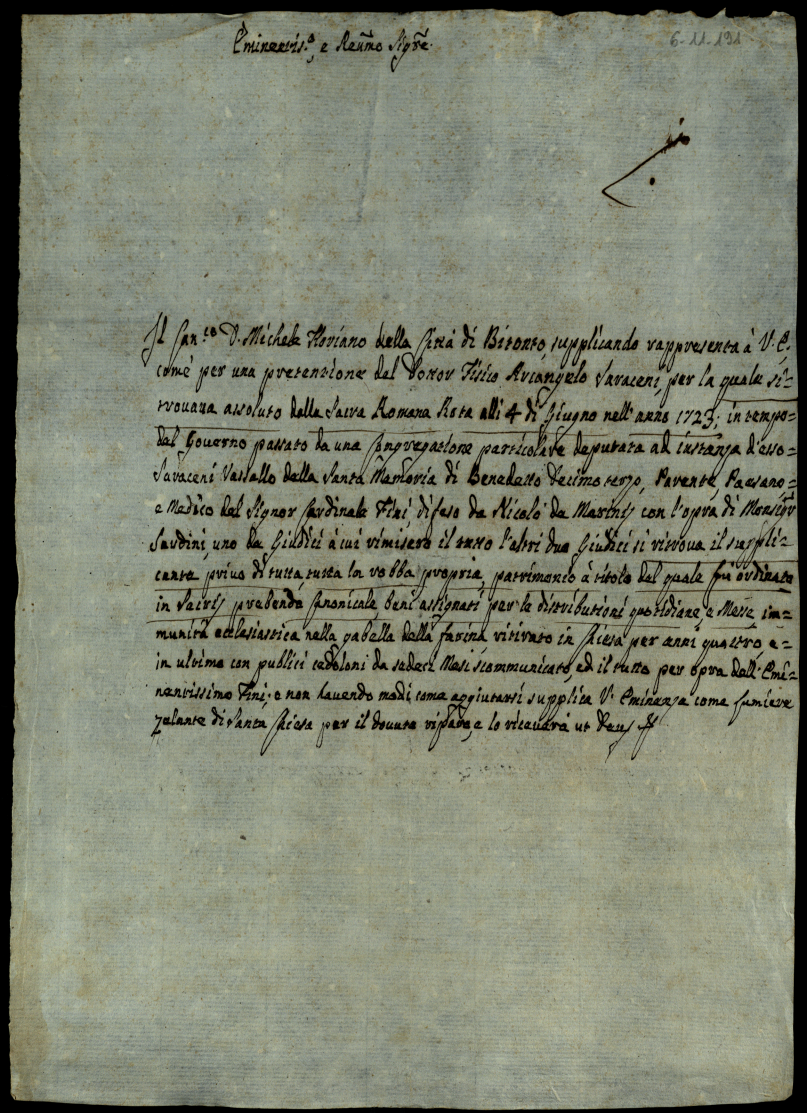 Eminentis.º e Reũmo Sigr̃e.
6-11-131
Il Can.co D. Michele Floriano della Città di Bitonto, supplicando rappresenta à V. E.
come per una pretenzione del Dottor Fisico Arcangelo Saraceni, per la quale si-
trovava assoluto dalla Sacra Romana Rota alli 4 di Giugno nell'anno 1723; in tempo-
del Governo passato da una Congregatione particolare deputata ad instanza d'esso-
Saraceni Vassallo della Santa Memoria di Benedetto Decimoterzo, Parente, Paesano,-
e Medico del Signor Cardinale Fini, difeso da Nicolò de Marinis con l'opra di Monsigr
Sardini, uno da Giudici à cui rimisero il tutto l'altri due Giudici si ritrova il suppli-
cante privo di tutta, tutta la robba propria, patrimonio à titolo del quale fù ordinato
in Sacris prebenda Canonicale beni assignati per le distributioni quotidiane, e Messe im-
munità ecclesiastica nella gabella della farina ritirato in Chiesa per anni quattro, e-
in ultimo con publici cedoloni da sedeci Mesi scommunicato, ed il tutto per opra dell'Emi-
nentissimo Fini; e non havendo modi come aggiutarsi supplica V. Eminenza come
zelante di Santa Chiesa per il dovuto riparo, e lo riceverà ut Deus